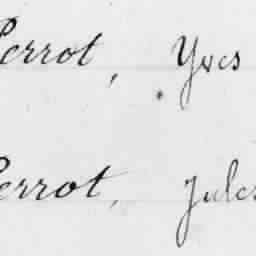 Perrot, Yves
Perrot, Jules